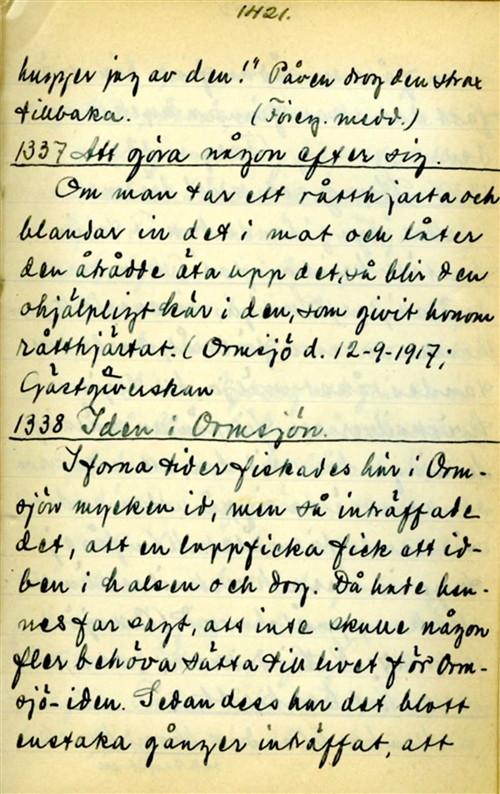 1421.
hugger jag av den!" Påven drog den strax
tillbaka. (Föreg. medd.)
1337 Att göra någon efter sig.
Om man tar ett råtthjärta och
blandar in det i mat och låter
den åtrådde äta upp det, så blir den
ohjälpligt kär i den, som givit honom
råtthjärtat. (Ormsjö d. 12-9-1917;
Gästgiverskan
1338 Iden i Ormsjön.
I forna tider fiskades här i Orm-
sjön mycken id, men så inträffade
det, att en lappflicka fick ett id-
ben i halsen och dog. Då hade hen-
nes far sagt, att inte skulle någon
fler behöva sätta till livet för Orm-
sjö-iden. Sedan dess har det blott
enstaka gånger inträffat, att